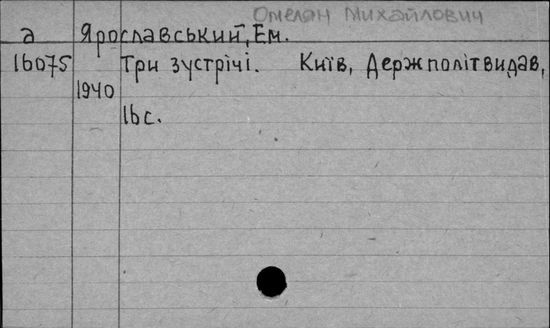 Омелян Михайлович
а Ярославський, Ем.
16075 Три зустрічі. Київ, Держполітвидав,
1940
16 с.